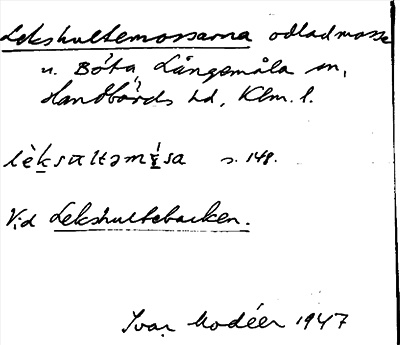 Lekshultemossarna odladmosse
u. Bóta, Långemåla sn,
Handbörds hd, Klm. l.
lèksαltəmɩ̀sa s. 148.
Vid Lekshultebacken.
Ivar Modéer 1947